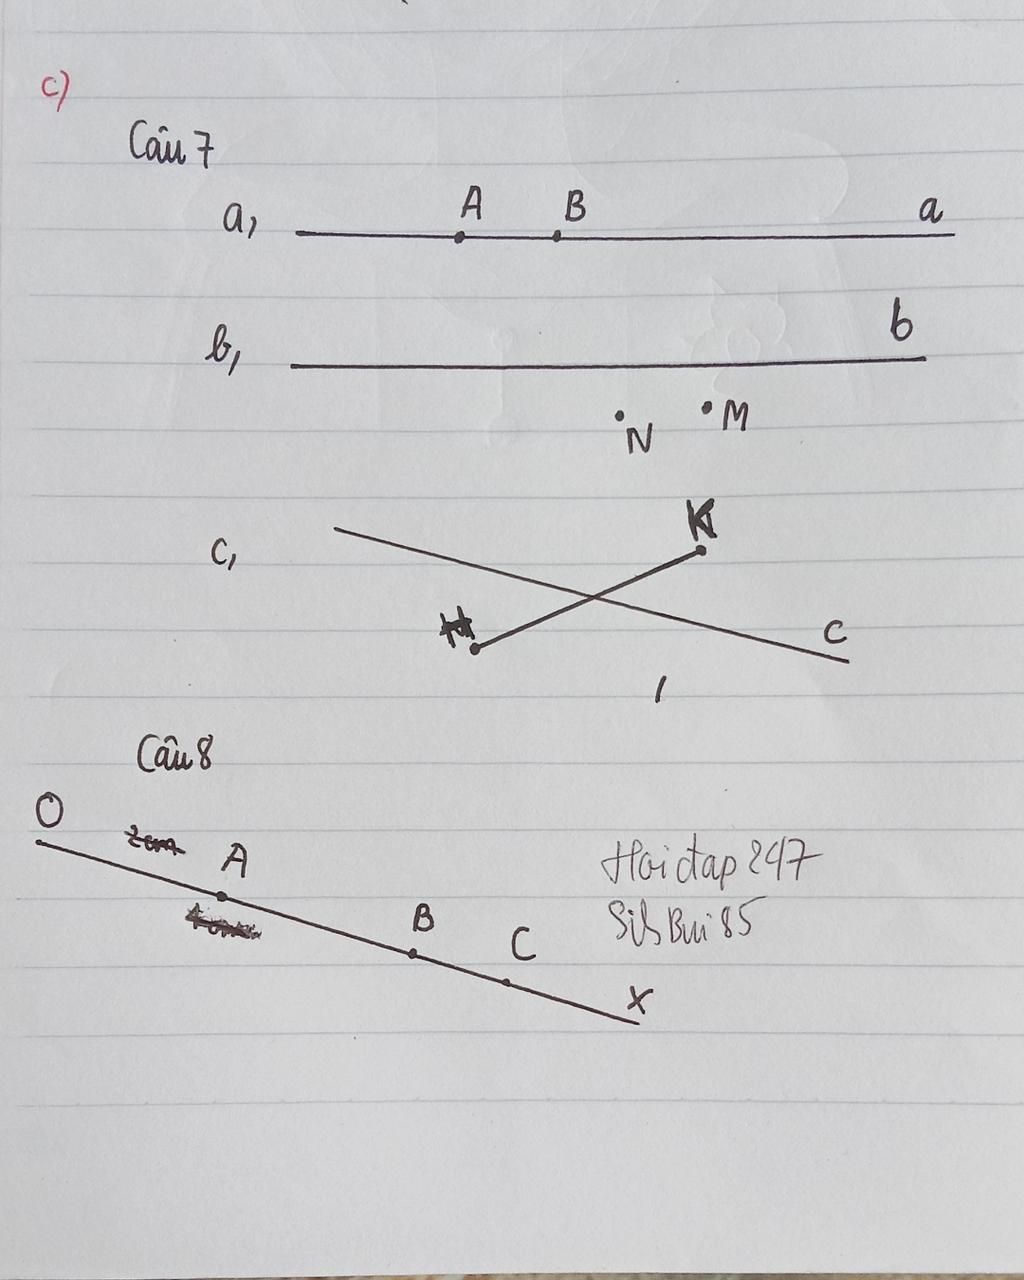 c)
Câu 7
a,
A B a
b,
b
N M
c,
K
H
C
Câu 8
O
A
B
C
x
Hoidap247
SihBui85